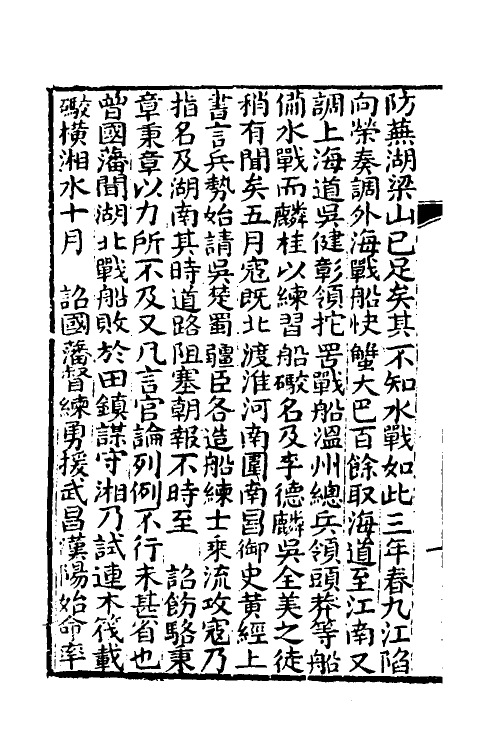 防蕪湖梁山已足矣其不知水戰如此三年春九江陷
向榮奏調外海戰船快蟹大巴百餘取海道至江南又
調上海道吳健彰領拕罟戰船溫州總兵領頭莽等船
備水戰而麟桂以練習船礮名及李德麟吳全美之徒
稍有聞矣五月寇既北渡淮河南圍南昌御史黃經上
書言兵勢始請吳楚蜀疆臣各造船練士乘流攻寇乃
指名及湖南其時道路阻塞朝報不時至　詔飭駱秉
章秉章以力所不及又凡言官論列例不行未甚省也
曾國藩聞湖北戰船敗於田鎮謀守湘乃試連木筏載
礮橫湘水十月　詔國藩督練勇援武昌漢陽始命率